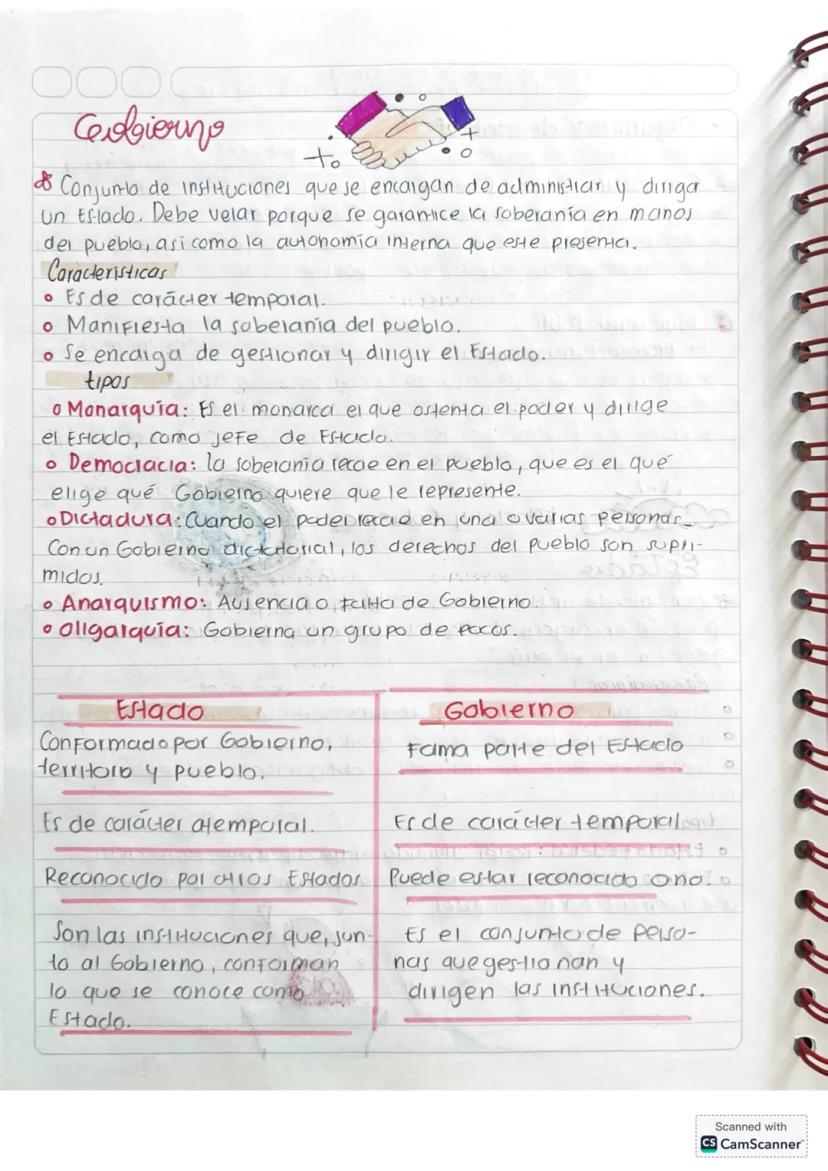 Gobierno
Conjunto de instituciones que se encargan de administrar y diriga
un Estado. Debe velar porque se garantice la soberanía en manos
del pueblo, asi como la autonomía interna que este presenta.
Características
Es de carácter temporal.
Manifiesta la soberanía del pueblo.
Se encarga de gestionar y dirigir el Estado.
tipos
Monarquía: Es el monarca el que ostenta el poder y dirige
el Estado, como jefe de Estado.
Democracia: la soberanía recae en el pueblo, que es el que
elige qué Gobierno quiere que le represente.
Dictadura: Cuando el poder recae en una o varias personas.
Con un Gobierno dictatorial, los derechos del pueblo son supri-
midos.
Anarquismo: Ausencia o falta de Gobierno.
Oligarquía: Gobierna un grupo de pocos.
Estado
Gobierno
Conformado por Gobierno,
territorio y pueblo.
Foma parte del Estado
Es de carácter atemporal.
Es de carácter temporal
Reconocido por otros Estados
Puede estar reconocido o no.
Son las instituciones que, jun-
to al Gobierno, conforman
lo que se conoce como
Estado.
Es el conjunto de perso-
nas que gestionan y
dirigen las instituciones.
Scanned with
CS CamScanner